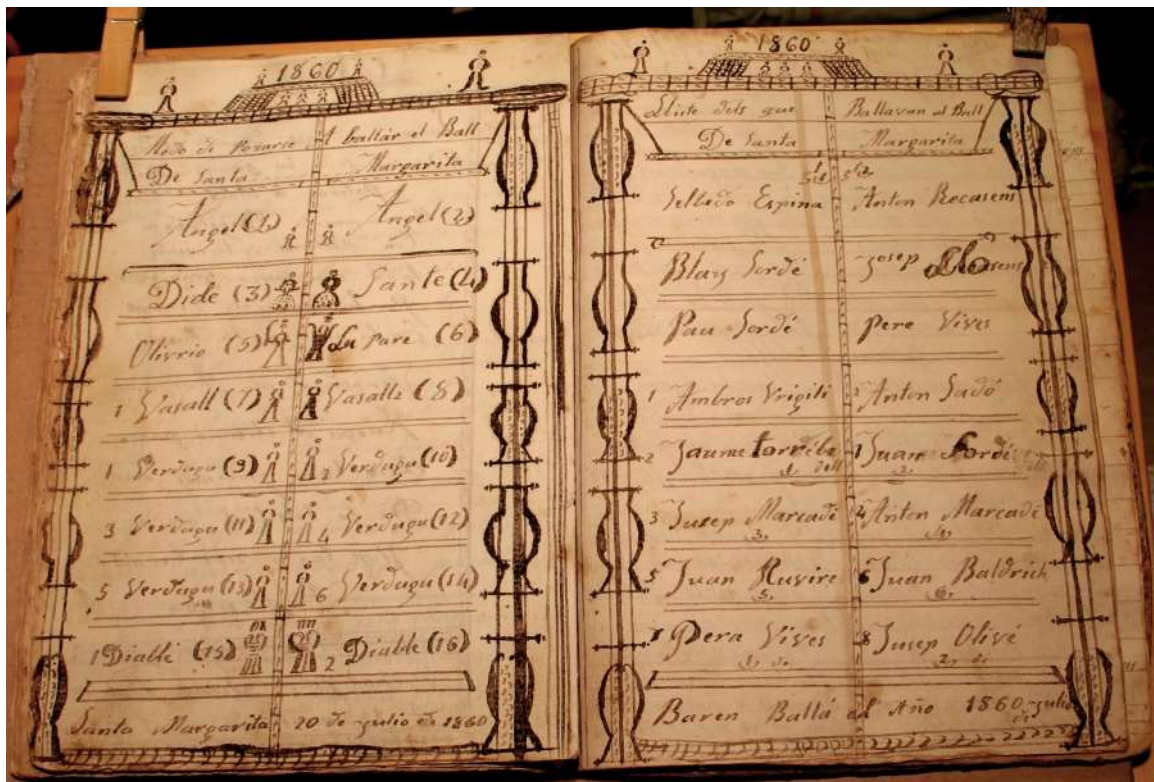 1860
Modo de Posarse A ballár el Ball
De Santa Margarita
Angel (1) Angel (2)
Dide (3) Sante (4)
Olivrio (5) Lu Pare (6)
1 Vasall (7) Vasall 2 (8)
1 Verdugu (9) 2 Verdugu (10)
3 Verdugu (11) 4 Verdugu (12)
5 Verdugu (13) 6 Verdugu (14)
1 Diablé (15) 2 Diable (16)
Santa Margarita 20 de julio de 1860
1860
Lliste dels que Ballavan el Ball
De Santa Margarita
Espina Anton Rocasens
Blay Jordé Josep
Pau Jordé Pere Vives
1 Ambros 2 Anton
2 Jaume 1 Juan Jordé
3 Jusep Marcadé 4 Anton Marcadé
3 4
5 Juan Ruvire 6 Juan Baldrich
5 6
7 Pera Vives 8 Jusep Olivé
Baren Ballá al Año 1860 julio